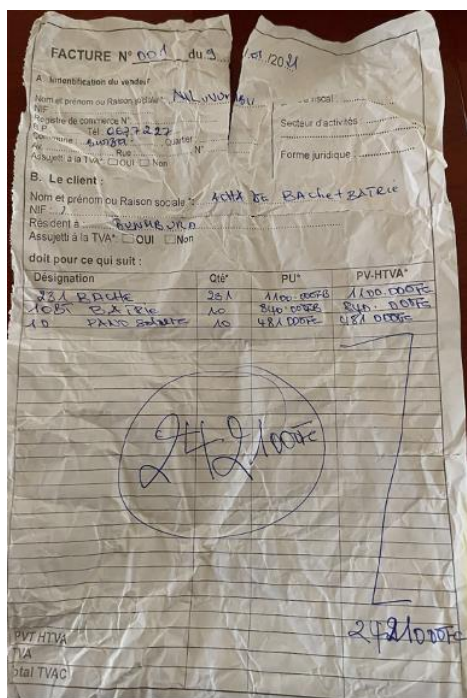 FACTURE N° 001 du 9 /01/2021
A. Identification du vendeur
Nom et prénom ou Raison sociale*:
NIF
Registre de commerce N°
Secteur d'activités
B.P. Tél 0677227
Commune: Quartier:
Av. Rue N°
Forme juridique
Assujetti à la TVA* OUI Non
B. Le client :
Nom et prénom ou Raison sociale*: ACHA DE BAChe + BATRIE
NIF:
Résident à
Assujetti à la TVA* OUI Non
doit pour ce qui suit :
Désignation Qté* PU* PV-HTVA*
231 BACHE 231 1100.000FB 1100.000FC
BATRIE 10 840.000FB 840.000FC
10 10 481 000FC 481 000FC
2421000FC
2421000FC
PVT HTVA
TVA
Total TVAC